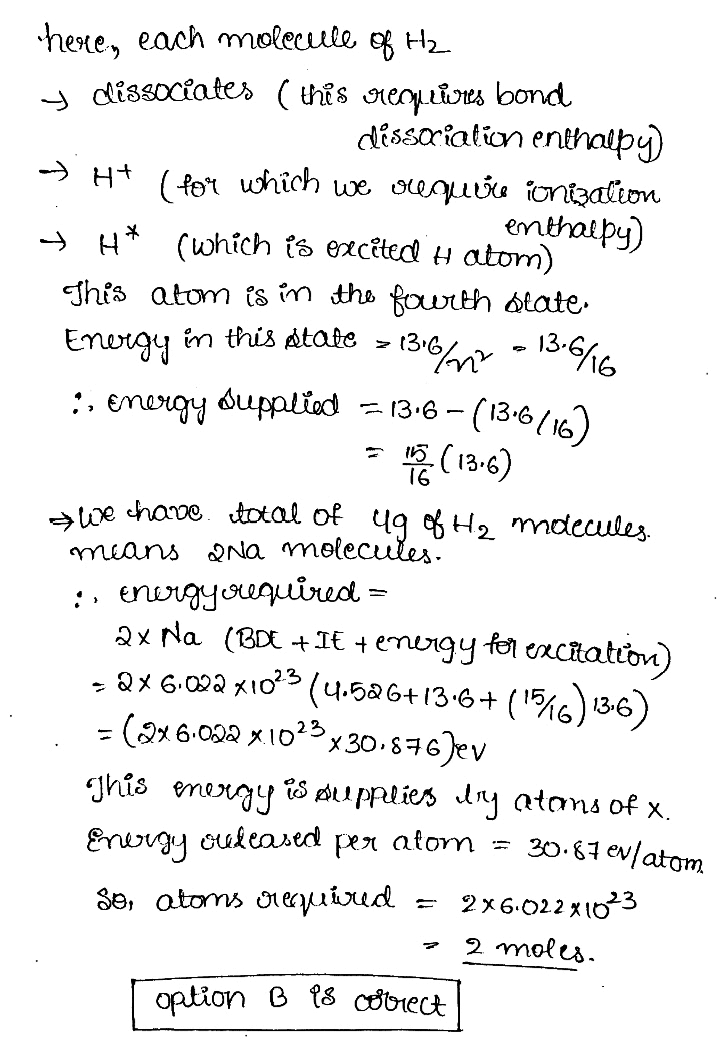 here, each molecule of H2
→ dissociates (this requires bond
dissociation enthalpy)
→ H+ (for which we require ionization
enthalpy)
→ H* (which is excited H atom)
This atom is in the fourth state.
Energy in this state = 13.6/n² = 13.6/16
∴ energy supplied = 13.6 - (13.6/16)
= 15/16 (13.6)
⇒ We have total of 4g of H2 molecules.
means 2Na molecules.
∴ energy required =
2 x Na (BDE + IE + energy for excitation)
= 2 x 6.022 x10²³ (4.526+13.6+ (15/16) 13.6)
= (2x 6.022 x 10²³ x 30.876) ev
This energy is supplies by atoms of x.
Energy released per atom = 30.87 ev/atom
So, atoms required = 2x6.022x10²³
= 2 moles.
option B is correct